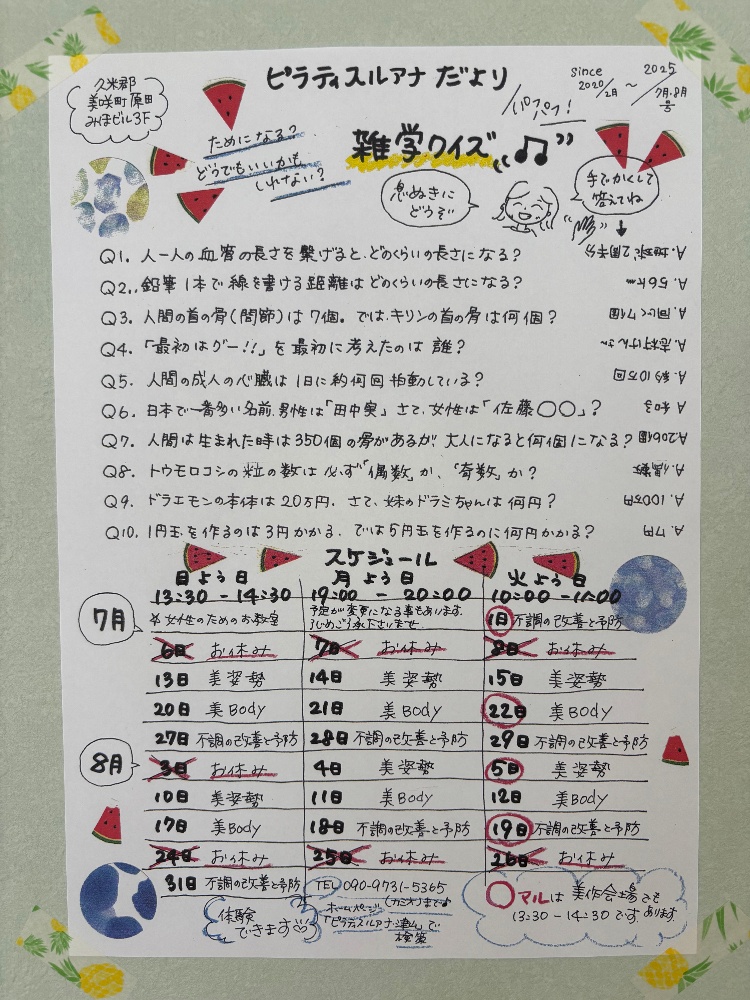 ピラティスルアナ だより
久米郡
美咲町原田
みほビル3F
since
2020/2月 〜 2025/7月・8月号
パフパフ!
ためになる?
どうでもいいかも
しれない?
雑学クイズ
息ぬきに
どうぞ
手でかくして
答えてね
Q1. 人一人の血管の長さを繋げると、どのくらいの長さになる? A.地球2周半分
Q2. 鉛筆1本で線を書ける距離はどのくらいの長さになる? A.56km
Q3. 人間の首の骨(関節)は7個。では、キリンの首の骨は何個? A.同じく7個
Q4. 「最初はグー!!」を最初に考えたのは誰? A.志村けんさん
Q5. 人間の成人の心臓は1日に約何回拍動している? A.約10万回
Q6. 日本で一番多い名前、男性は「田中実」さて、女性は「佐藤〇〇」? A.和子
Q7. 人間は生まれた時は350個の骨があるが大人になると何個になる? A.206個
Q8. トウモロコシの粒の数は必ず「偶数」か、「奇数」か? A.偶数
Q9. ドラエモンの本体は20万円。さて、妹のドラミちゃんは何円? A.100万円
Q10. 1円玉を作るのは3円かかる。では5円玉を作るのに何円かかる? A.7円
スケジュール
日よう日 月よう日 火よう日
13:30 - 14:30 19:00 - 20:00 10:00 - 11:00
7月
※女性のためのお教室 予定が変更になる事もあります。 1日 不調の改善と予防
うじめご了承下さいませ
6日 お休み 7日 お休み 8日 お休み
13日 美姿勢 14日 美姿勢 15日 美姿勢
20日 美Body 21日 美Body 22日 美Body
27日 不調の改善と予防 28日 不調の改善と予防 29日 不調の改善と予防
8月
3日 お休み 4日 美姿勢 5日 美姿勢
10日 美姿勢 11日 美Body 12日 美Body
17日 美Body 18日 不調の改善と予防 19日 不調の改善と予防
24日 お休み 25日 お休み 26日 お休み
31日 不調の改善と予防
体験
できます♡
TEL 090-9731-5365
ホームページ
「ピラティスルアナ 津山」で
検索
〇マルは 美作会場でも
13:30 - 14:30 です あります